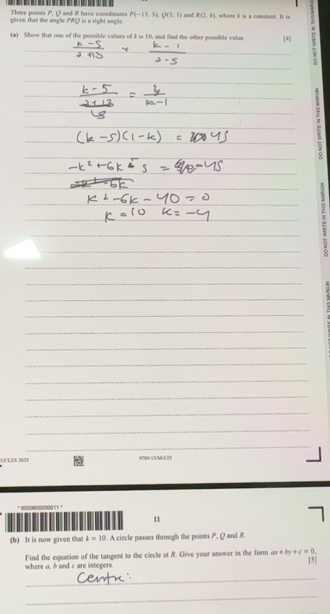 Three points P, Q and R have coordinates P(−13, 5), Q(5, 1) and R(2, k), where k is a constant. It is
given that the angle PRQ is a right angle.
(a) Show that one of the possible values of k is 10, and find the other possible value. [4]
k - 5 / 2 + 13 × k - 1 / 2 - 5
k - 5 / 15 = 3 / k - 1
(k - 5)(1 - k) = 45
-k² + 6k - 5 = -45
k² - 6k - 40 = 0
k = 10 k = -4
DO NOT WRITE IN THIS MARGIN
DO NOT WRITE IN THIS MARGIN
DO NOT WRITE IN THIS MARGIN
UCLES 2025
11
(b) It is now given that k = 10. A circle passes through the points P, Q and R.
Find the equation of the tangent to the circle at R. Give your answer in the form ax + by + c = 0,
where a, b and c are integers. [5]
Centre: